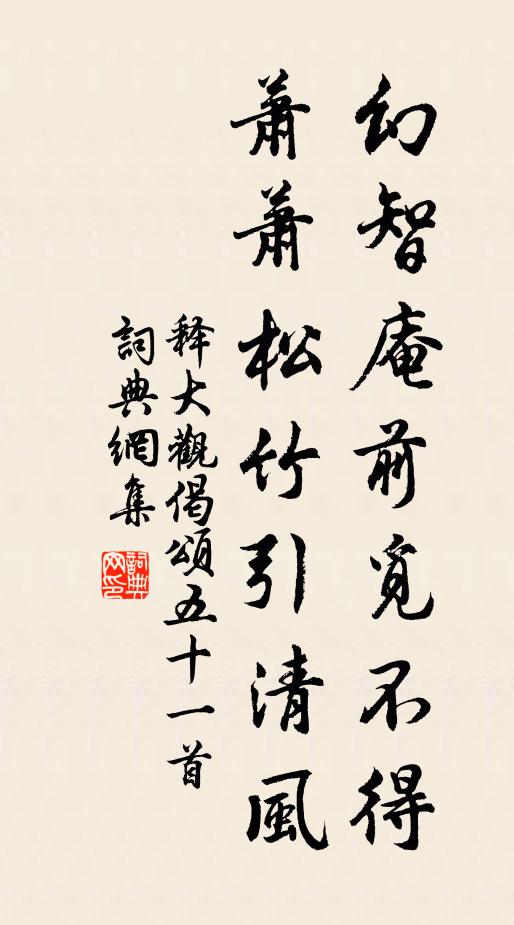 幻智庵前覓不得
蕭蕭松竹引清風
释大觀偈頌五十一首
詞典網集
詞典网印